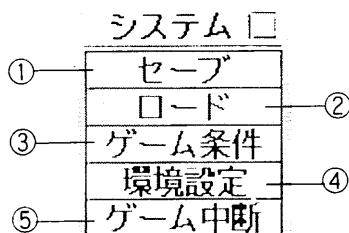 システム □
① セーブ
ロード ②
③ ゲーム条件
環境設定 ④
⑤ ゲーム中断